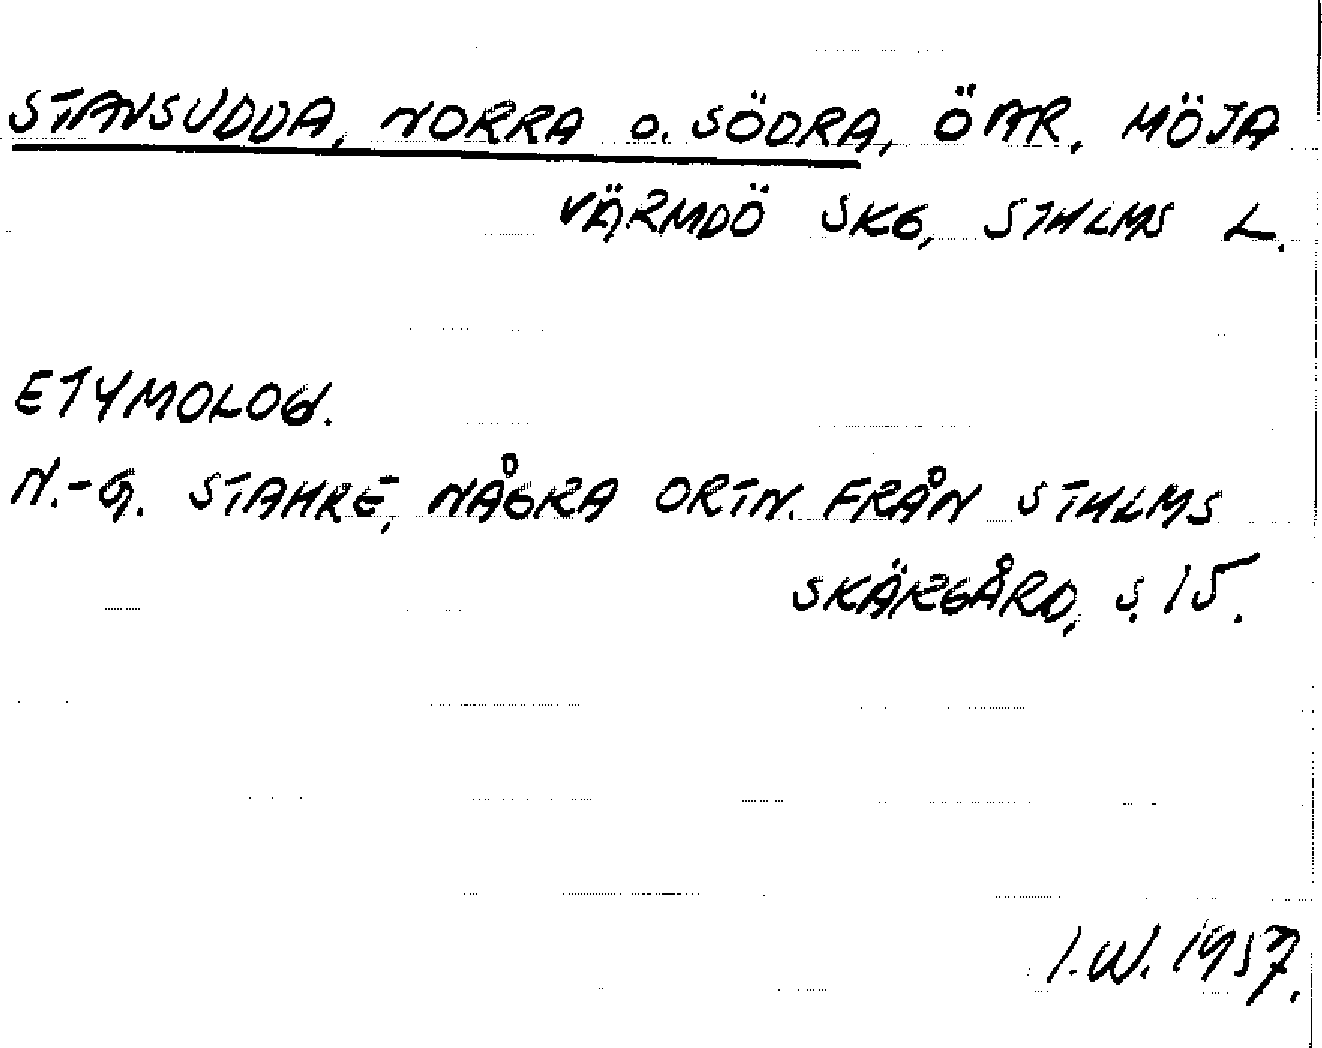 STAVSUDDA, NORRA o. SÖDRA, ÖAR, MÖJA
VÄRMDÖ SKG, STHLMS L.
ETYMOLOGI.
N.-G. STAHRE, NÅGRA ORTN. FRÅN STHLMS
SKÄRGÅRD, S. 15.
I.W. 1957.